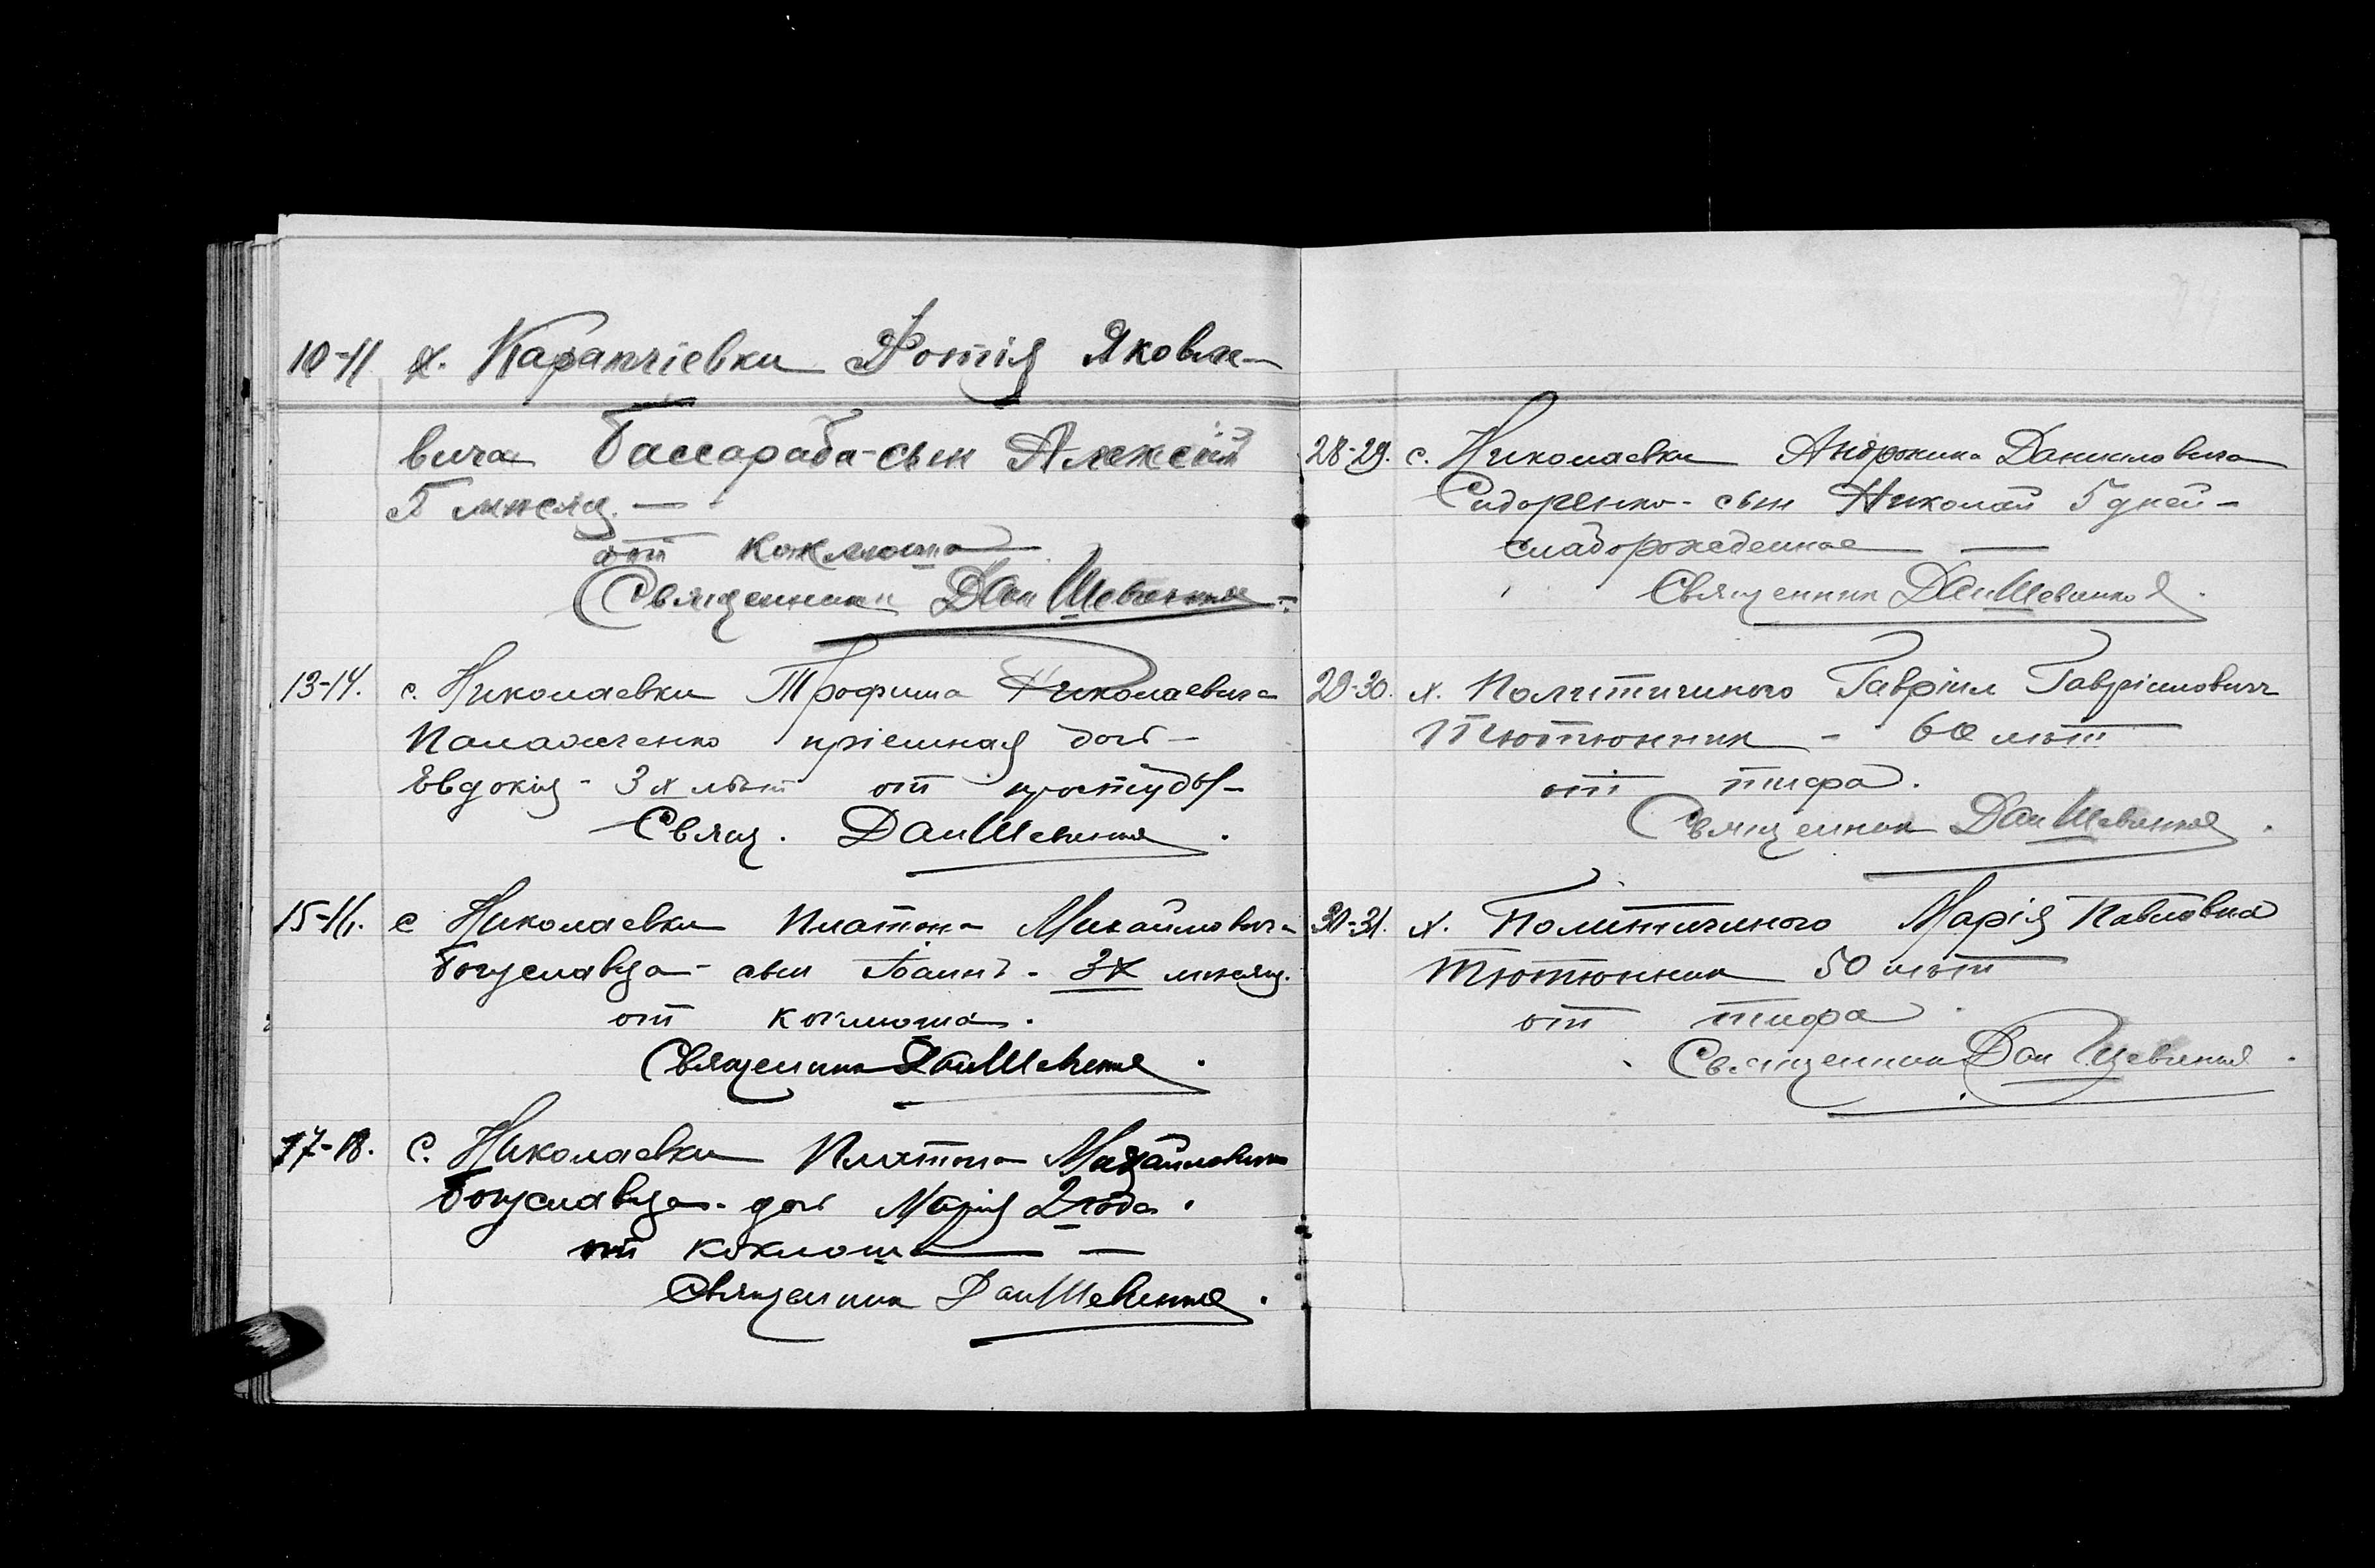 10-11 х. Карапчіевки Фотія Яковле-
вича Бассараба-сын Алексій
5 месяц. —
от коклюша
Священник Дан Шевченко
13-14. с. Николаевки Трофима Николаевича
Паламаренко пріемная дочь -
Евдокія - 3х лет от простуды -
Свящ. Дан Шевченко.
15-16. с Николаевки Платона Михайловича
Богуславца - сын Іоаннъ - 3х месяц.
от коклюша.
Священник Дан Шевченко.
17-18. с. Николаевки Платона Михайловича
Богуславца - дочь Марія 2 года.
от коклюша —
Священник Дан Шевченко.
28-29. с. Николаевки Андроника Даниловича
Сидоренко - сын Николай 5 дней -
слаборожденное —
Священник Дан Шевченко.
29-30. х. Гавріил Гавріилович
Тютюнник - 60 лет
от тифа.
Священник Дан Шевченко.
30-31. х. Марія Павловна
Тютюнник 50 лет
от тифа.
Священник Дан Шевченко.